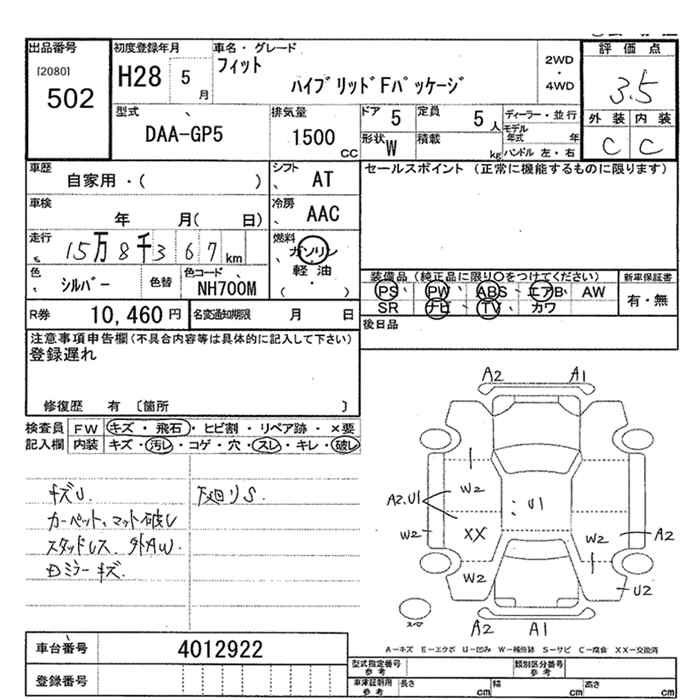 出品番号
[2080]
502
初度登録年月
H28 5 月
車名・グレード
フィット
ハイブリッドFパッケージ
2WD
・
4WD
評価点
3.5
外装 内装
C C
型式
DAA-GP5
排気量
1500 CC
ドア 5
定員 5 人
形状 W
積載 kg
ディーラー・並行
モデル年式 年
ハンドル 左・右
車歴
自家用・( )
シフト
AT
車検
年 月( 日)
冷房
AAC
走行
15万8千367km
燃料
ガソリン
・
軽油
( )
色
シルバー
色替
色コード
NH700M
R券 10,460円
名変通知期限 月 日
セールスポイント (正常に機能するものに限ります)
装備品 (純正品に限り○をつけてください)
PS・PW・ABS・エアB・AW
SR ナビ・TV・カワ
新車保証書
有・無
後日品
注意事項申告欄(不具合内容等は具体的に記入して下さい)
登録遅れ
修復歴 有 〔箇所 〕
検査員記入欄
FW キズ・飛石・ヒビ割・リペア跡・×要
内装 キズ・汚レ・コゲ・穴・スレ・キレ・破レ
キズU.
カーペット、マット破レ
スタッドレス. 外AW.
ミラーキズ.
下廻りS.
A2 A1
W2
A2.U1
U1
W2
XX
W2
A2
W2
U2
A2 A1
A-キズ E-エクボ U-凹み W-補修跡 S-サビ C-腐食 XX-交換済
車台番号 4012922
登録番号
型式指定番号
参考
類別区分番号
参考
車庫証明用
参考
長さ cm 幅 cm 高さ cm